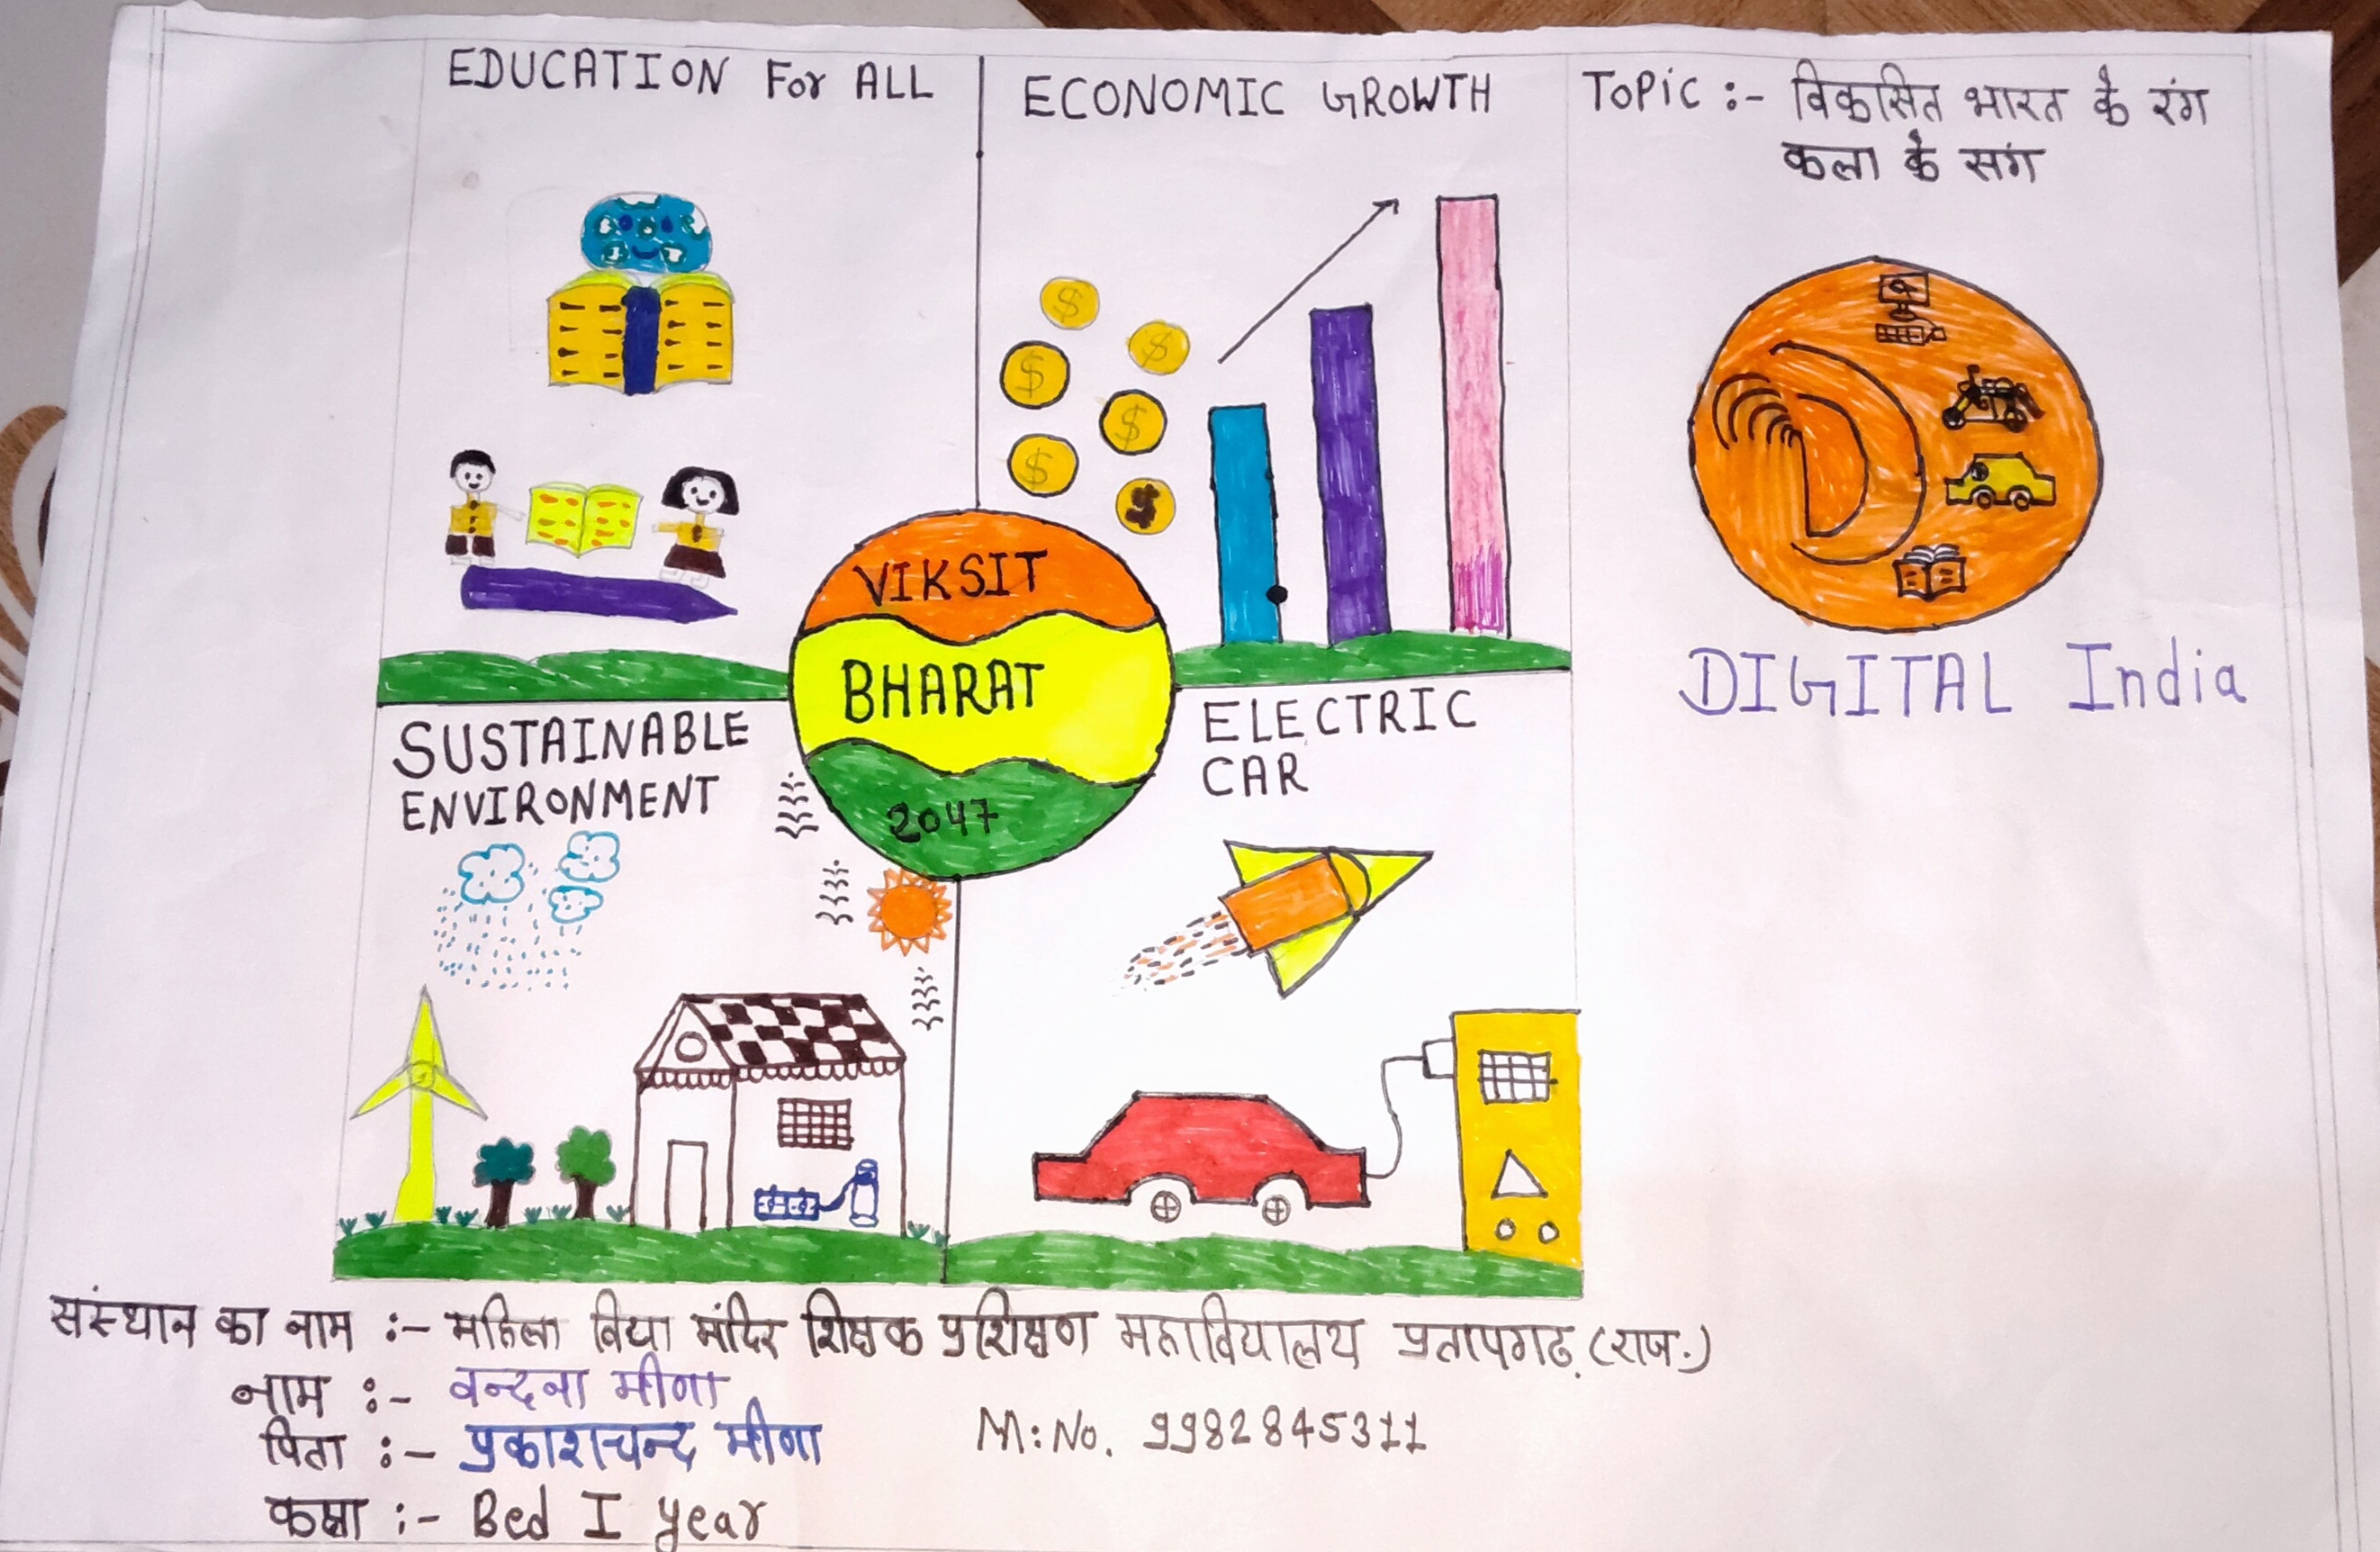 EDUCATION For ALL
ECONOMIC GROWTH
TOPIC :- विकसित भारत के रंग
कला के संग
$
$
$
$
$
$
VIKSIT
BHARAT
2047
DIGITAL India
SUSTAINABLE
ENVIRONMENT
ELECTRIC
CAR
संस्थान का नाम :- महिला विद्या मंदिर शिक्षक प्रशिक्षण महाविद्यालय प्रतापगढ़ (राज.)
नाम :- वन्दना मीणा
पिता :- प्रकाशचन्द मीणा
M: No. 9982845311
कक्षा :- Bed I year